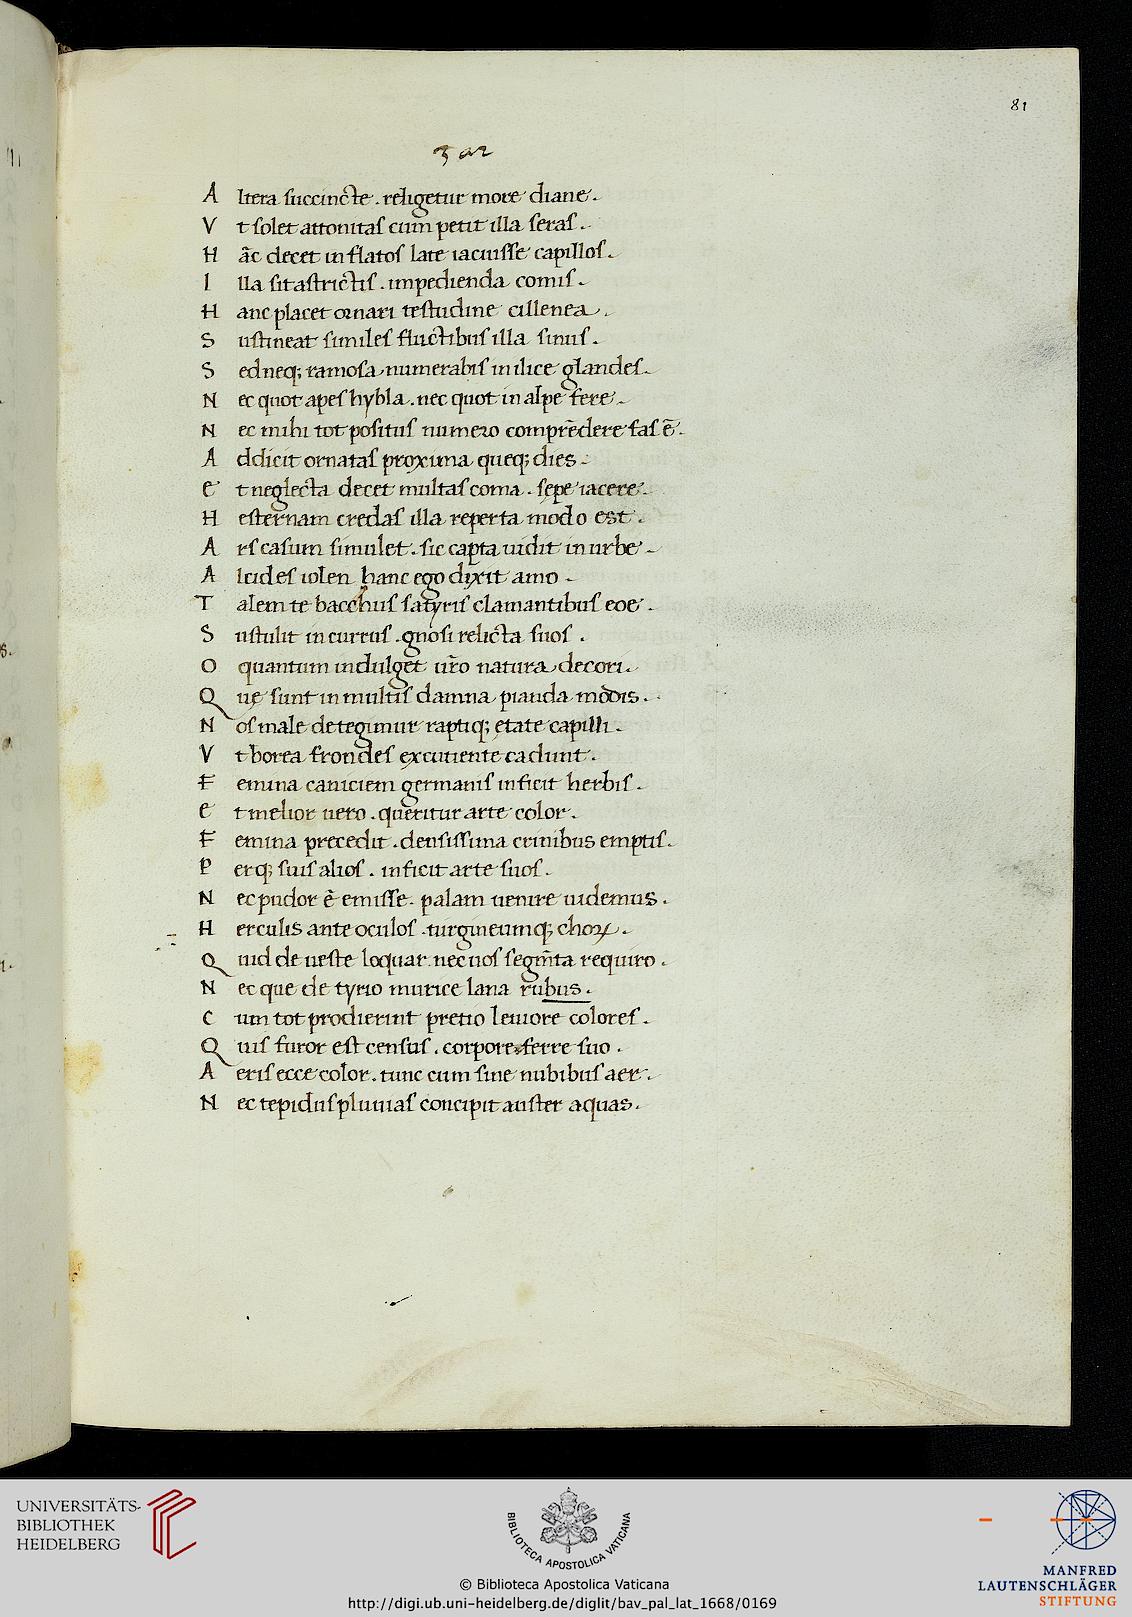 81
A ltera succincte . religetur more diane .
V t solet attonitas cum petit illa feras .
H āc decet inflatos late iacuisse capillos .
I lla sit astrictis . impedienda comis .
H anc placet ornari testudine cillenea .
S ustineat similes fluctibus illa sinus .
S ed neq; ramosa numerabis in ilice glandes .
N ec quot apes hybla . nec quot in alpe fere .
N ec mihi tot positus numero comprēdere fas ē .
A ddicit ornatas proxima queq; dies .
E t neglecta decet multas coma . sępe iacere .
H esternam credas illa reperta modo est .
A rs casum simulet . sic capta uidit in urbe .
A lcides iolen hanc ego dixit amo .
T alem te bacchus satyris clamantibus eoe .
S ustulit in currus . gnosi relicta suos .
O quantum indulget ur̄o natura decori .
Q uę sunt in multis damna pianda modis .
N os male detegimur raptiq; ętate capilli .
V t borea frondes excutiente cadunt .
F emina caniciem germanis inficit herbis .
E t melior uero . queritur arte color .
F emina precedit . densissima crinibus emptis .
P erq; suis alios . inficit arte suos .
N ec pudor ē emisse . palam uenire uidemus .
H erculis ante oculos . uirgineumq; choꝝ .
Q uid de ueste loquar nec uos segm̄ta requiro .
N ec que de tyrio murice lana rubus .
C um tot prodierint pretio leuiore colores .
Q uis furor est census . corpore ferre suo .
A eris ecce color . tunc cum sine nubibus aer .
N ec tepidus pluuias concipit auster aquas .
UNIVERSITÄTS-
BIBLIOTHEK
HEIDELBERG
BIBLIOTECA APOSTOLICA VATICANA
MANFRED
LAUTENSCHLÄGER
STIFTUNG
© Biblioteca Apostolica Vaticana
http://digi.ub.uni-heidelberg.de/diglit/bav_pal_lat_1668/0169